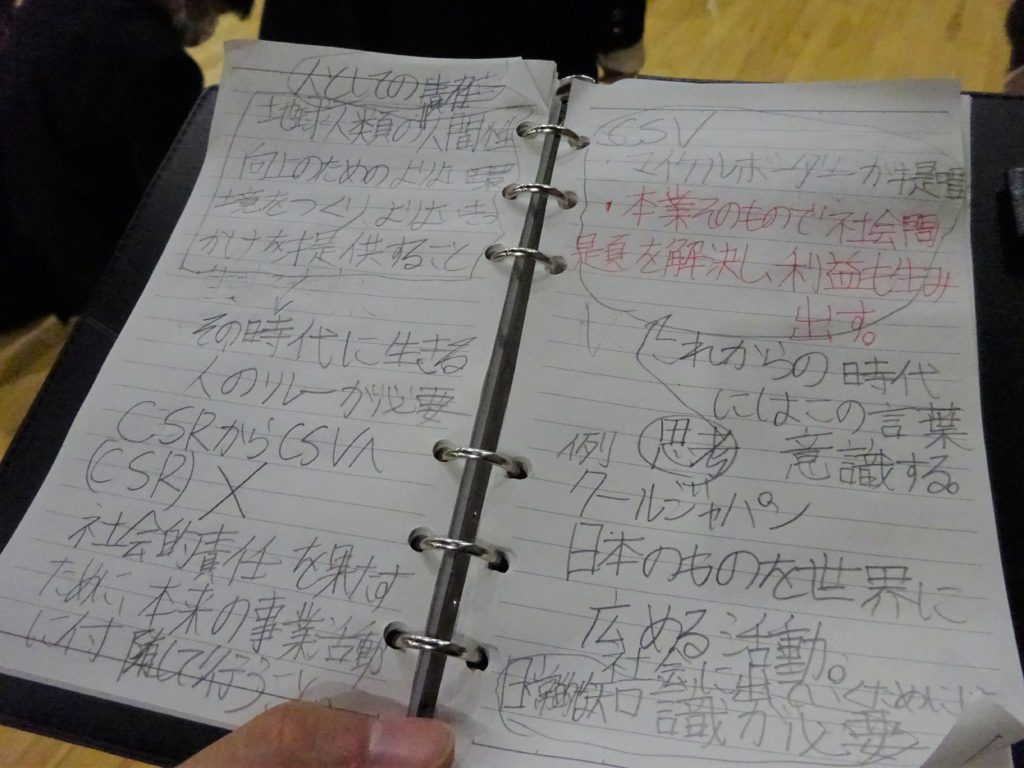 人としての責任
地球人類の人間性
向上のためのよりよい環
境をつくりよりよいきっ
かけを提供すること
その時代に生きる
人のリレーが必要
CSRからCSVへ
(CSR) X
社会的責任を果たす
ために、本来の事業活動
に付随して行うこと
CSV
・マイケルポーターが提唱
・本業そのもので社会問
題を解決し、利益も生み
出す。
これからの時代
にはこの言葉
例 思考 意識する。
クールジャパン
日本のものを世界に
広める活動。
社会に出ていくためには
知識が必要